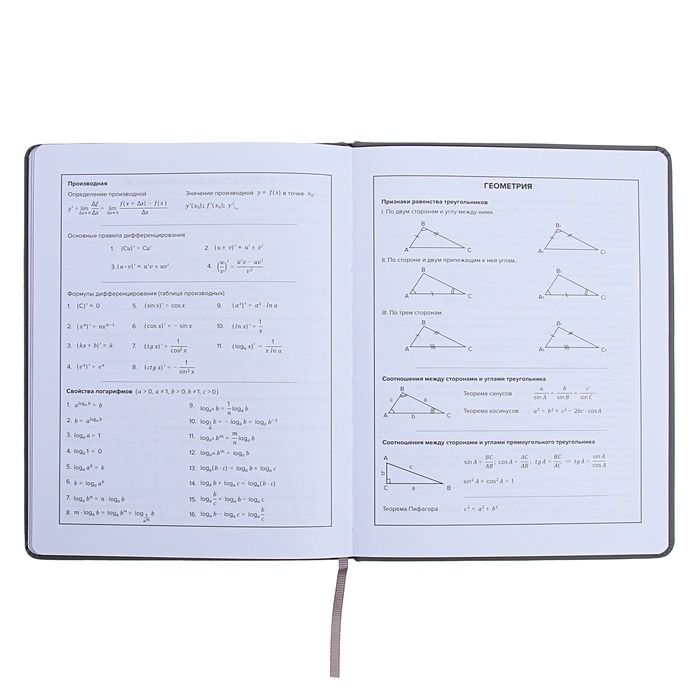 Производная
Определение производной
y' = lim Δf/Δx = lim (f(x + Δx) − f(x))/Δx
Δx→0 Δx→0
Значение производной y = f(x) в точке x₀:
y'(x₀); f'(x₀); y'|ₓ₀
Основные правила дифференцирования
1. (Cu)' = Cu'
2. (u ± v)' = u' ± v'
3. (u · v)' = u'v + uv'
4. (u/v)' = (u'v − uv')/v²
Формулы дифференцирования (таблица производных)
1. (C)' = 0
2. (xⁿ)' = nxⁿ⁻¹
3. (kx + b)' = k
4. (eˣ)' = eˣ
5. (sin x)' = cos x
6. (cos x)' = − sin x
7. (tg x)' = 1/cos² x
8. (ctg x)' = − 1/sin² x
9. (aˣ)' = aˣ · ln a
10. (ln x)' = 1/x
11. (logₐ x)' = 1/(x ln a)
Свойства логарифмов (a > 0, a ≠ 1, b > 0, b ≠ 1, c > 0)
1. a^(logₐ b) = b
2. b = a^(logₐ b)
3. logₐ a = 1
4. logₐ 1 = 0
5. logₐ aᵏ = k
6. k = logₐ aᵏ
7. logₐ bᵐ = m · logₐ b
8. m · logₐ b = logₐ bᵐ = log
9. b = 1/n logₐ b
10. b = − logₐ b = logₐ b⁻¹
11. bᵐ = m/n logₐ b
12. bᵐ = logₐ b
13. logₐ(b · c) = logₐ b + logₐ c
14. logₐ b + logₐ c = logₐ(b · c)
15. logₐ b/c = logₐ b − logₐ c
16. logₐ b − logₐ c = logₐ b/c
ГЕОМЕТРИЯ
Признаки равенства треугольников
I. По двум сторонам и углу между ними.
B B₁
A C A₁ C₁
II. По стороне и двум прилежащим к ней углам.
B B₁
A C A₁ C₁
III. По трем сторонам.
B B₁
A C A₁ C₁
Соотношения между сторонами и углами треугольника
A
c b
B a C
Теорема синусов a/sin A = b/sin B = c/sin C
Теорема косинусов a² = b² + c² − 2bc · cos A
Соотношения между сторонами и углами прямоугольного треугольника
A
b c
C a B
sin A = BC/AB; cos A = AC/AB; tg A = BC/AC ⇒ tg A = sin A/cos A
sin² A + cos² A = 1
Теорема Пифагора c² = a² + b²